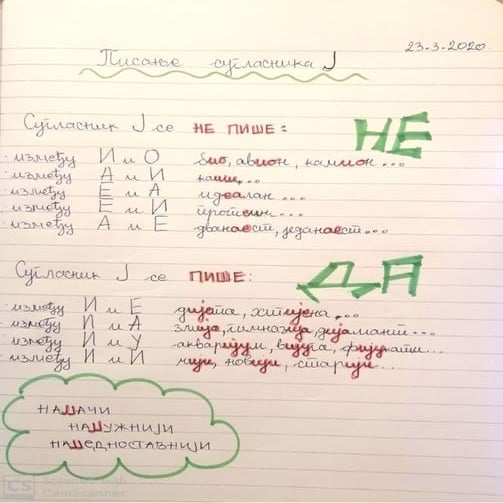 23.3.2020.
Писање сугласника Ј
Сугласник Ј се НЕ ПИШЕ: НЕ
између И и О био, авион, камион...
између А и И каиш,...
између Е и А идеалан...
између Е и И протеин...
између А и Е дванаест, једанаест...
Сугласник Ј се ПИШЕ: ДА
између И и Е дијета, хигијена,...
између И и А змија, гимназија, дијамант...
између И и У акваријум, вијуга, фијукати...
између И и И нови, старији...
НАЈЈАЧИ
НАЈЈУЖНИЈИ
НАЈЈЕДНОСТАВНИЈИ
CS Scanned with
CamScanner